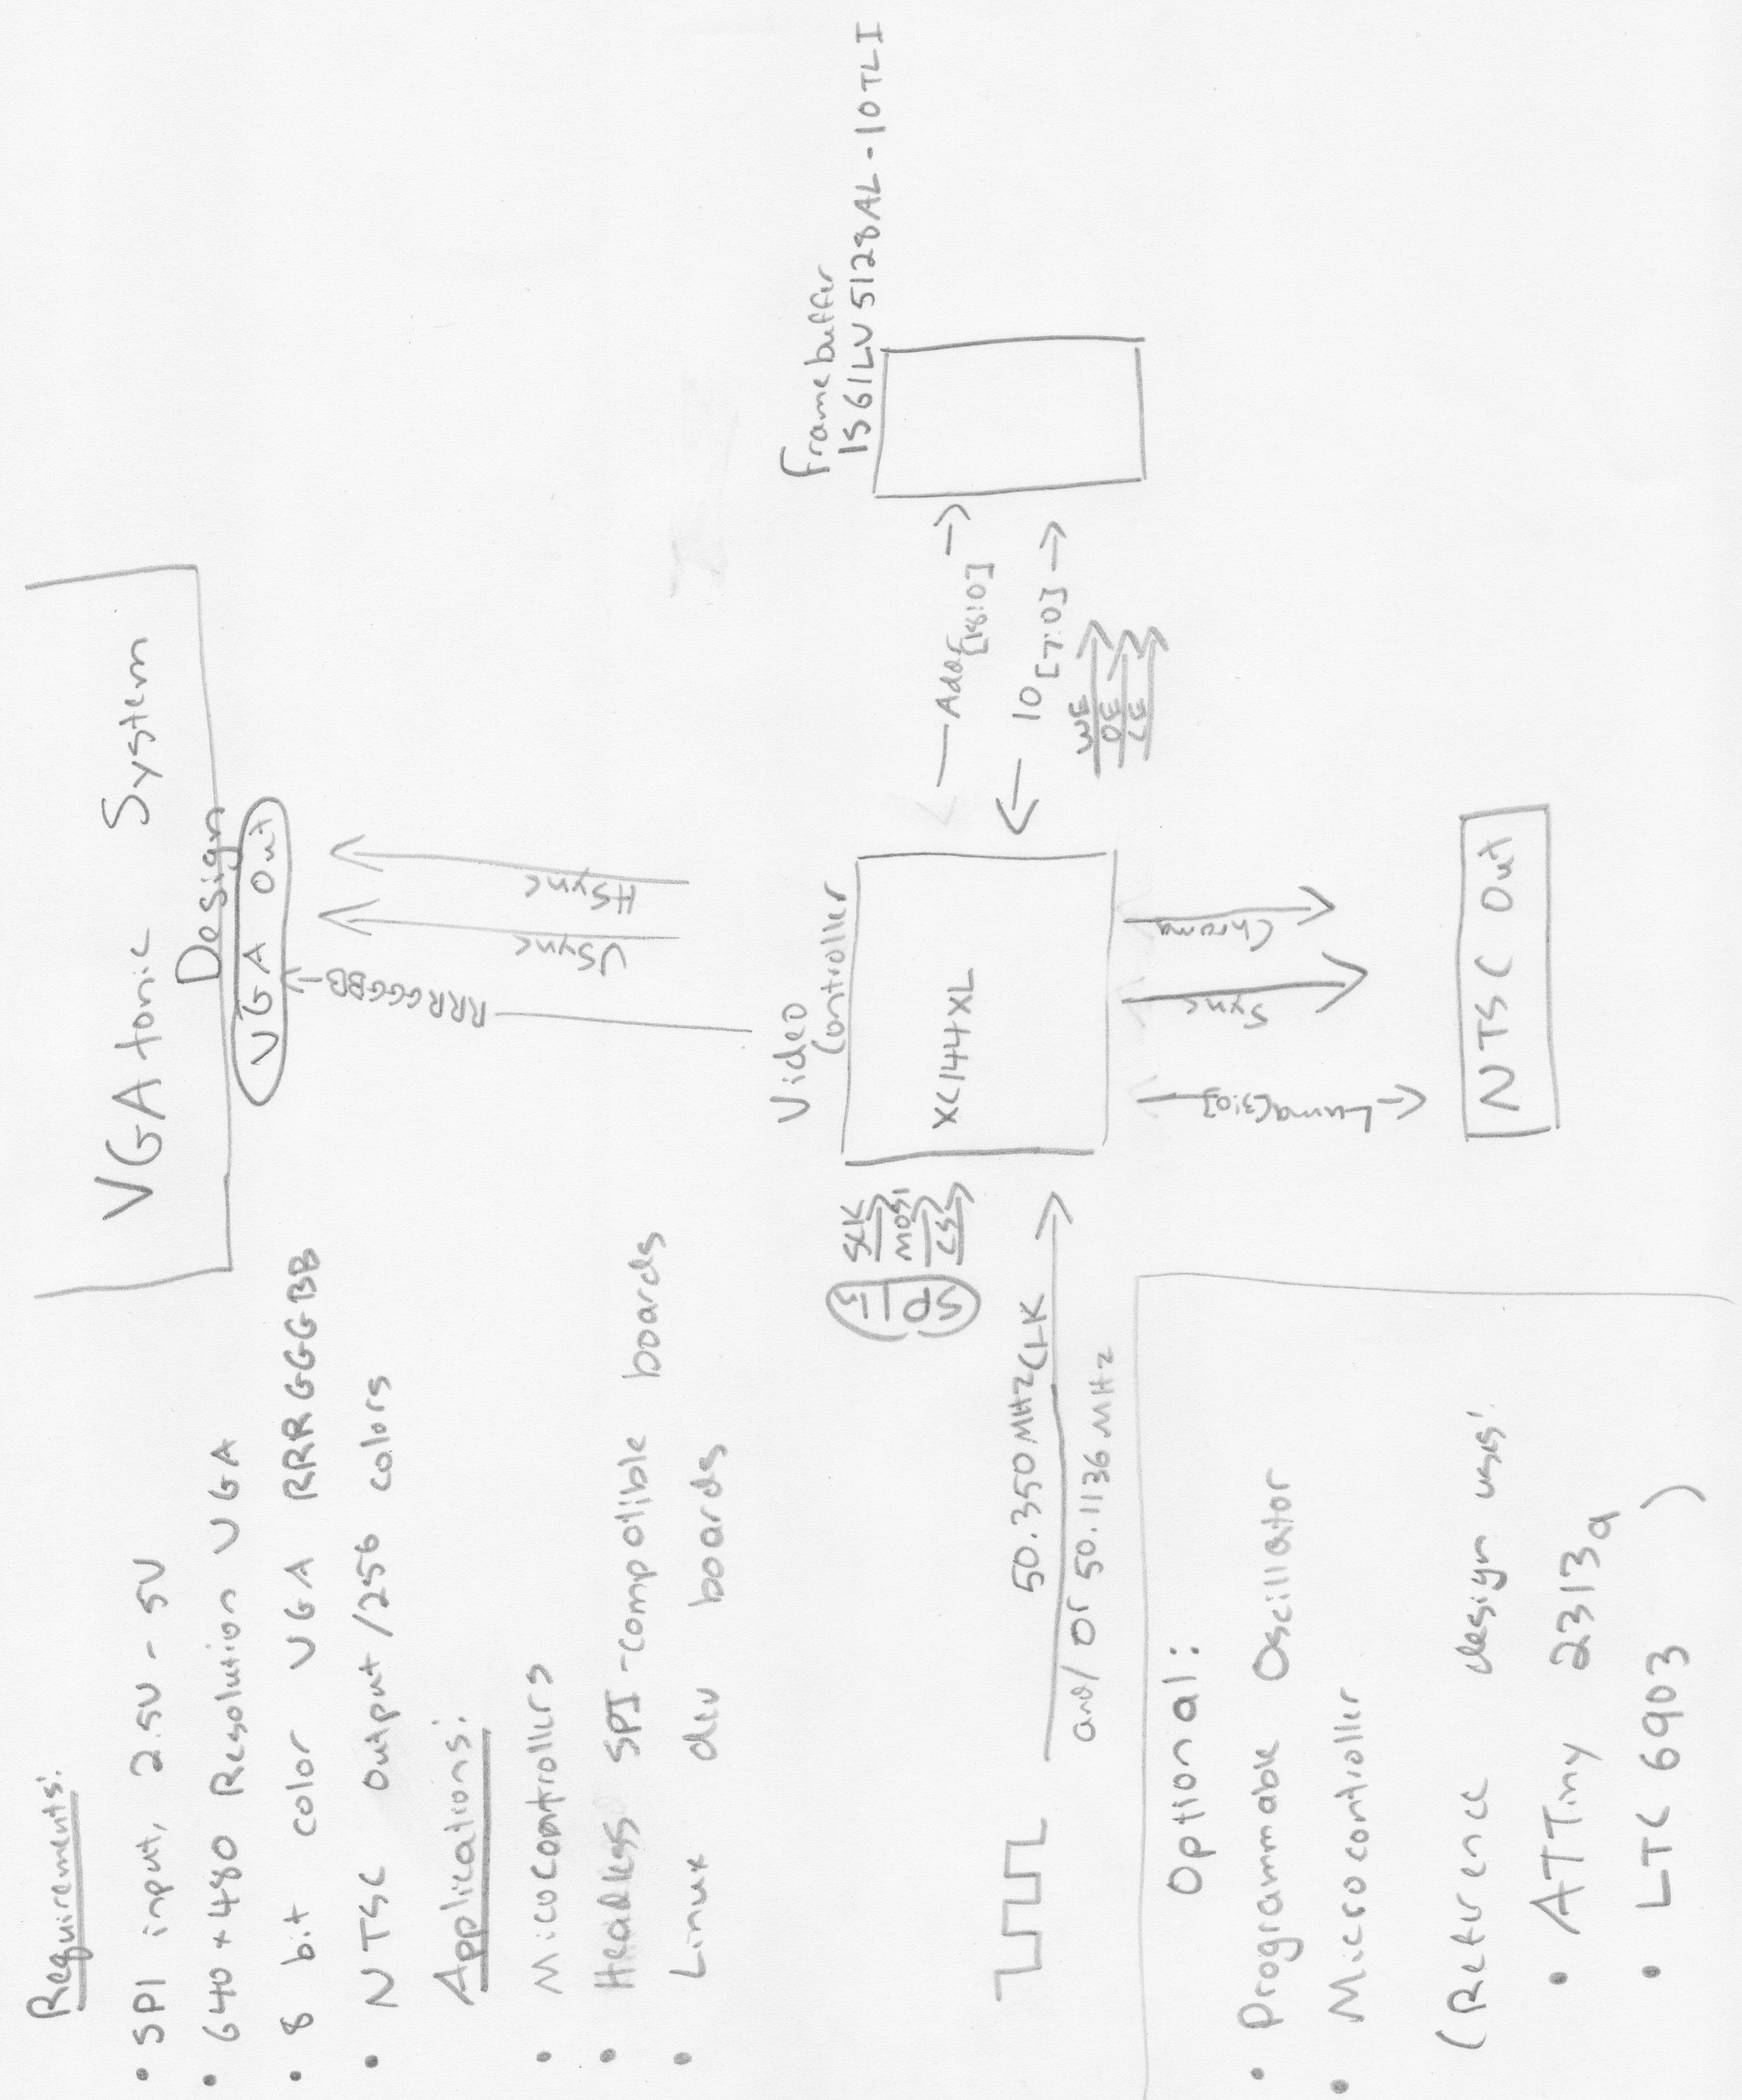 VGAtonic System
Design
Requirements:
• SPI input, 2.5V - 5V
• 640x480 Resolution VGA
• 8 bit color VGA RRRGGGBB
• NTSC output/256 colors
Applications:
• Micocontrollers
• Headless SPI-compatible boards
• Linux dev boards
VGA Out
RRRGGGBB
VSync
HSync
Video
Controller
XC144XL
SPI
SCLK
MOSI
CS
50.350MHz CLK
and/or 50.1136 MHz
Framebuffer
IS61LV5128AL-10TLI
Addr[18:0]
IO[7:0]
WE
OE
CE
Luma[3:0]
Sync
Chroma
NTSC Out
Optional:
• Programmable Oscillator
• Microcontroller
(Reference design uses:
• ATTiny 2313a
• LTC 6903 )